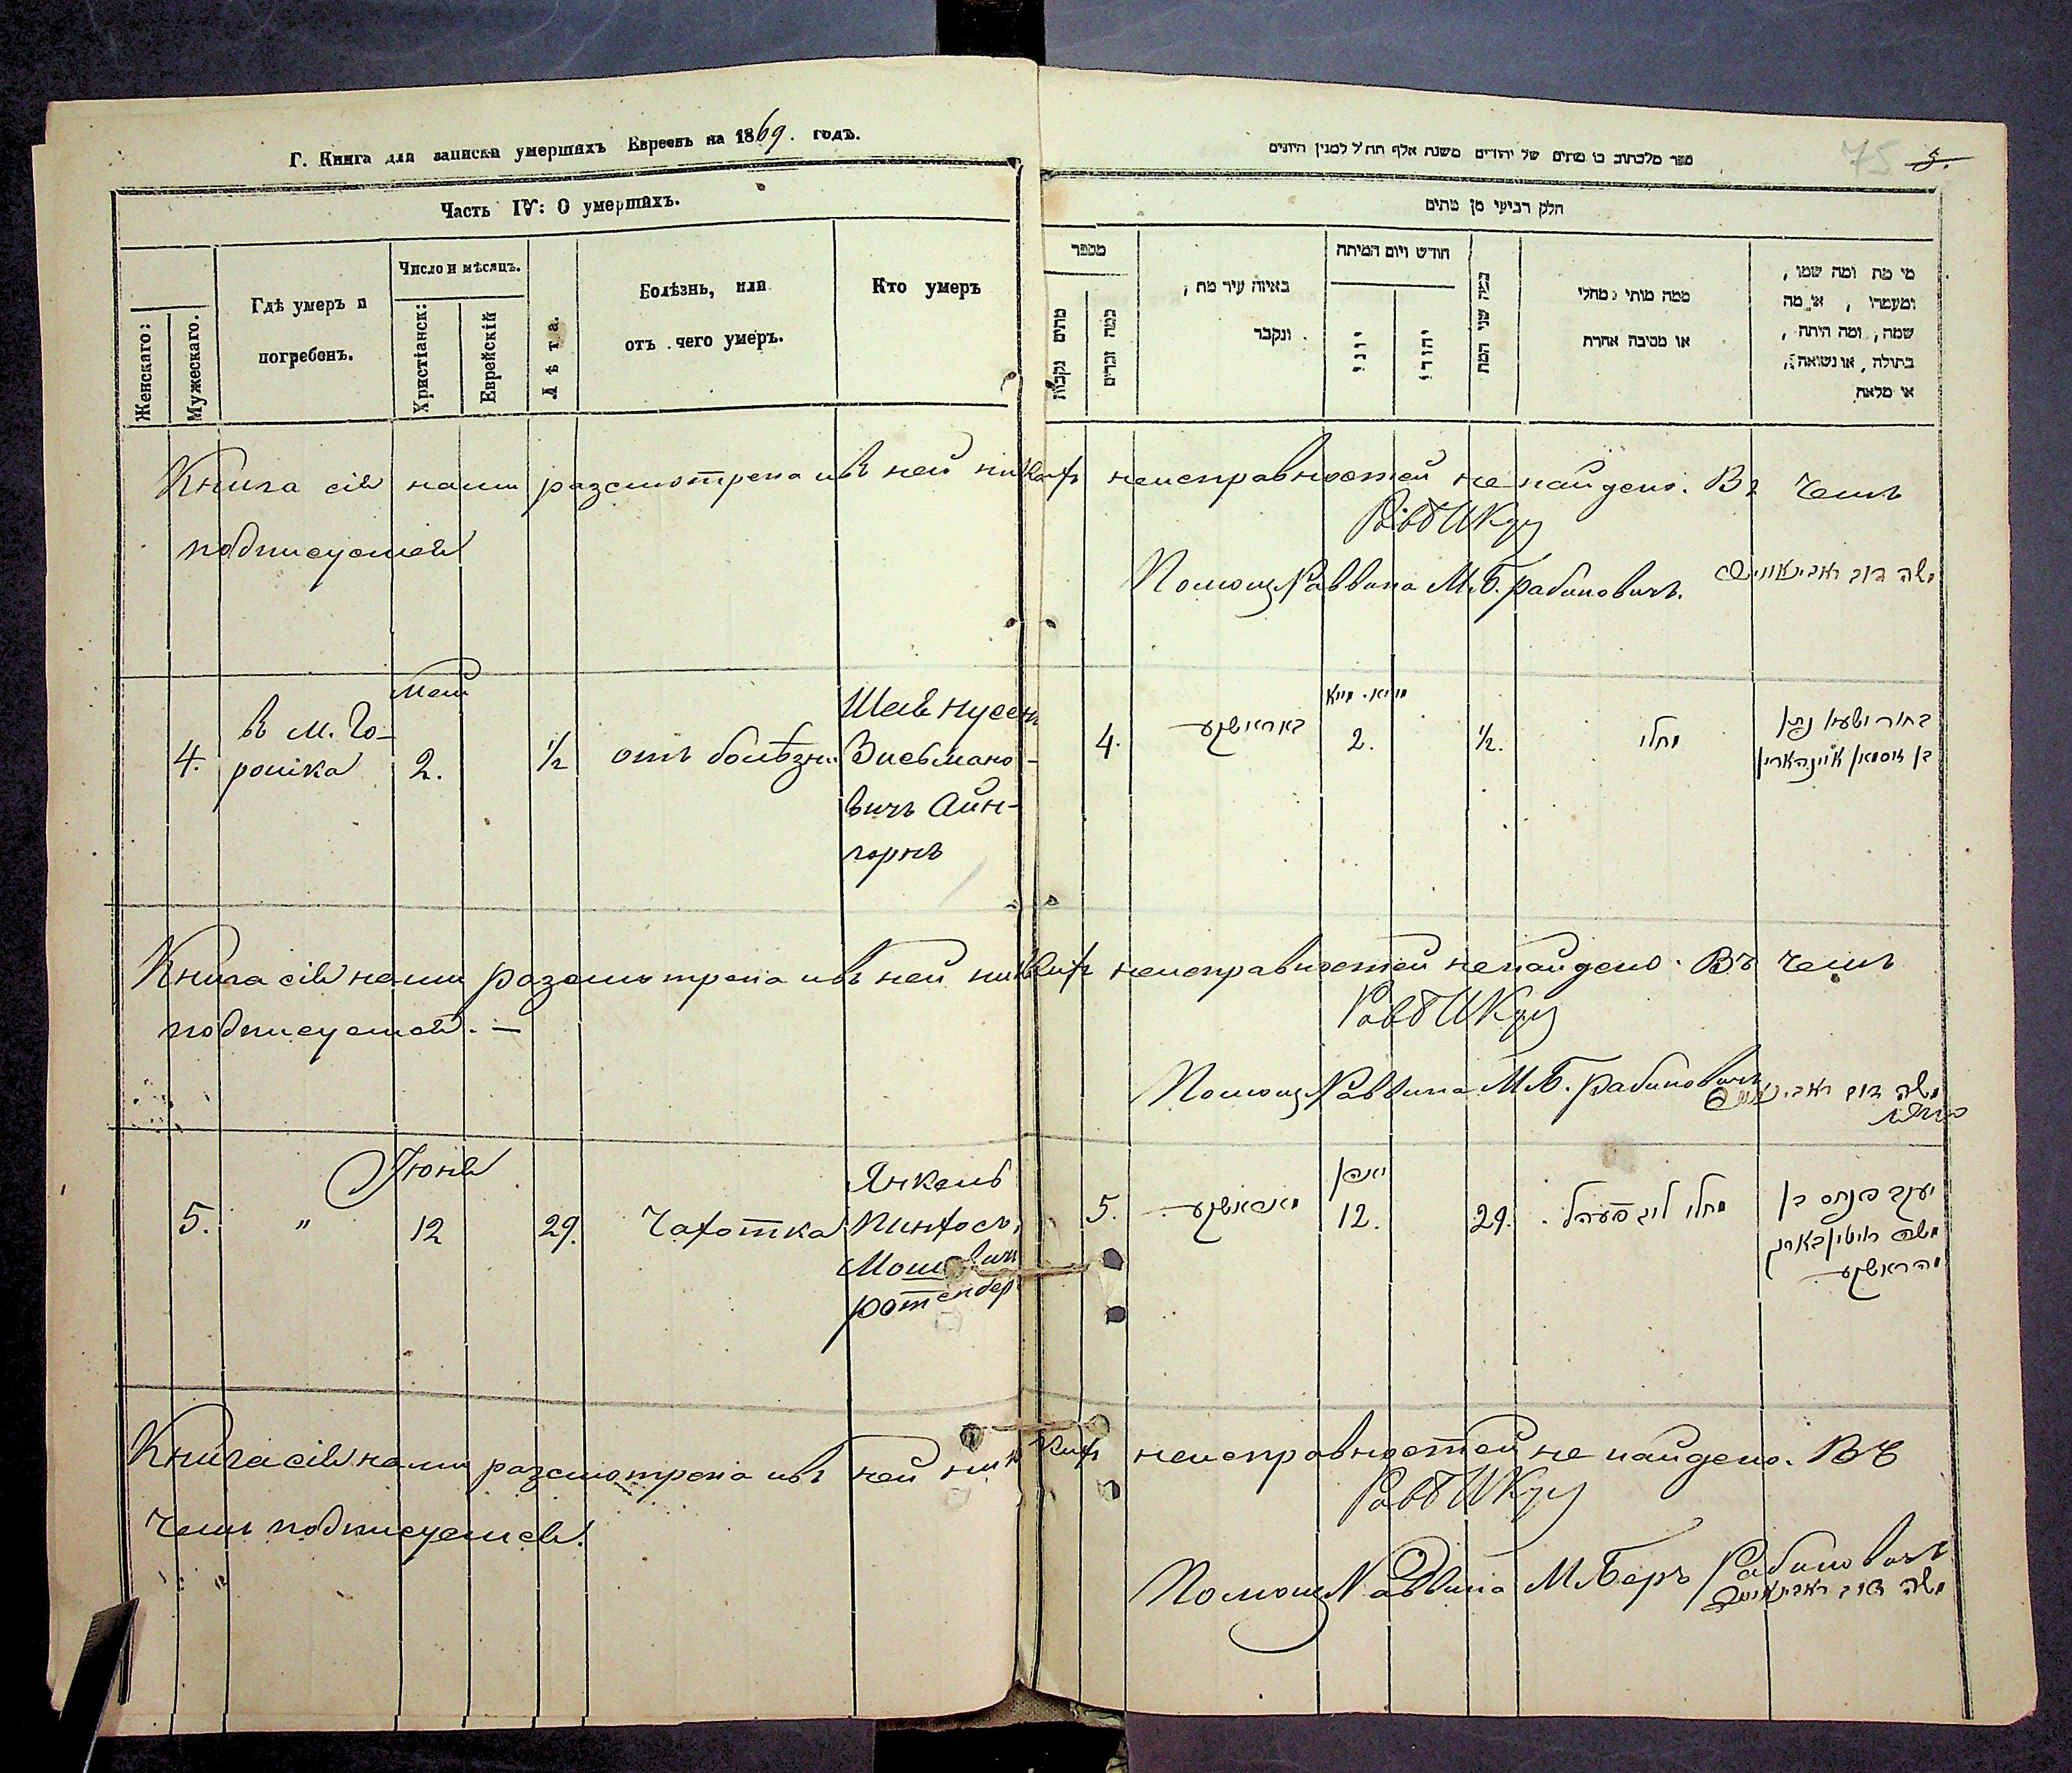 Г. Книга для записки умершихъ Евреевъ на 1869. годъ.
Часть IV: О умершихъ.
Женскаго:
Мужескаго.
Гдѣ умеръ и
погребенъ.
Число и мѣсяцъ.
Христіанск:
Еврейскій
Лѣта.
Болѣзнь, или
отъ чего умеръ.
Кто умеръ
ספר מלכתוב בו מתים של יהודים משנת אלף תת"ל למנין היונים
75 5.
חלק רביעי מן מתים
מספר
מתים נקבות
כמה זכרים
באיזה עיר מת,
ונקבר
חודש ויום המיתה
יוני
יהודי
כמה שני המת
ממה מותי מחלי
או מסיבה אחרת
מי מת ומה שמו,
ומעמדו, או מה
שמה, ומה היתה,
בתולה, או נשואה,
או מלאה
Книга сія нами разсмотрена и въ ней никакихъ неисправностей не найдено. Въ чемъ
подписуемся
Помощ Раввина М. Б. Рабиновичъ. משה דוב ראבינאוויטש
Май
4.
въ м. Го-
рошка
2.
1/2
отъ болѣзни
Шая Нусен
Зисьмано-
вичъ Айн-
горнъ
4.
האראשקע
מייא
2.
1/2.
מחלי
בחור ישעי' נתן
בן זוסמאן איינהארין
Книга сія нами разсмотрена и въ ней никакихъ неисправностей не найдено. Въ чемъ
подписуемся. —
Помощ Раввина М. Б. Рабиновичъ משה דוב
Іюня
5.
"
12
29.
Чахотка
Янкель
Пинхосъ
Мошковичъ
Ротенбер
5.
יאון
12.
29.
מחלי
יעקב פנחס בן
משה ראטינבארג
מהראשקע
Книга сія нами разсмотрена и въ ней никакихъ неисправностей не найдено. Въ
чемъ подписуемся.
Помощ Раввина М. Беръ Рабиновичъ
משה דוב ראבינאוויטש